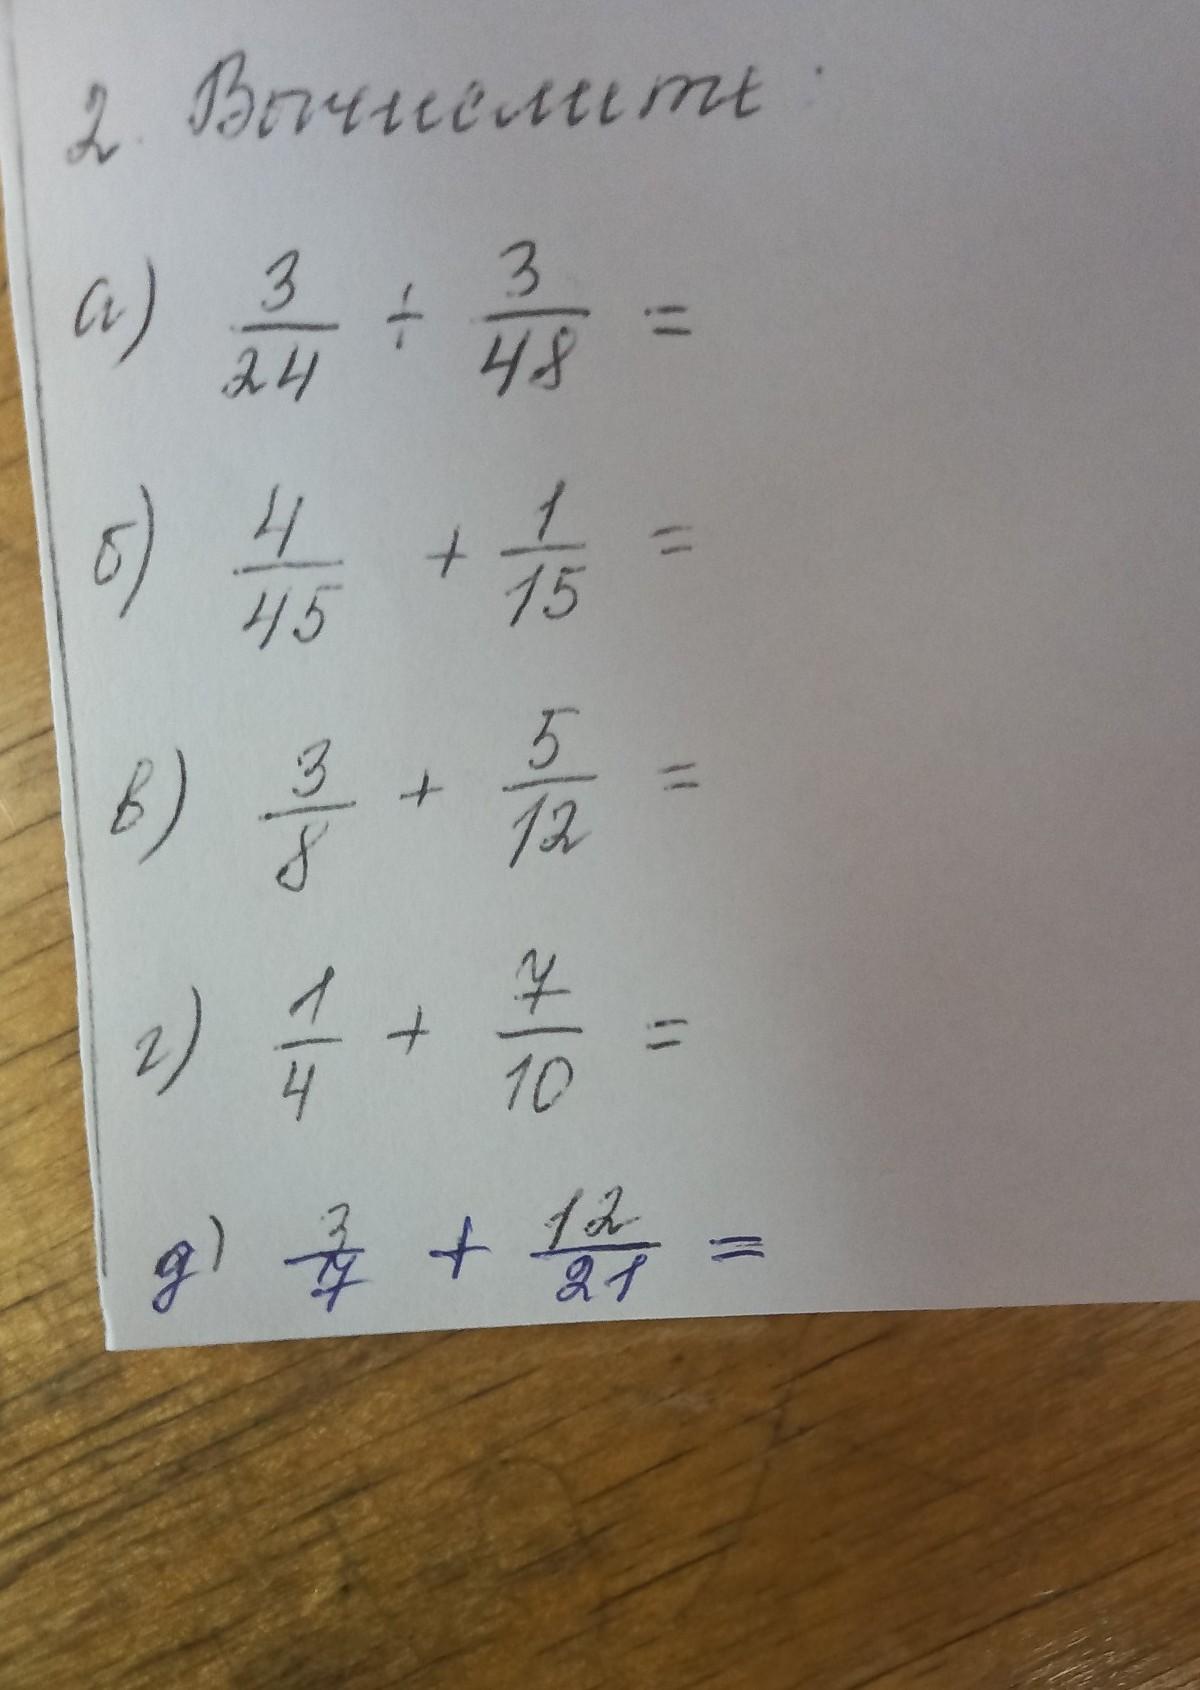 2. Вычислить:
а) 3/24 ÷ 3/48 =
б) 4/45 + 1/15 =
в) 3/8 + 5/12 =
г) 1/4 + 7/10 =
д) 3/7 + 12/21 =